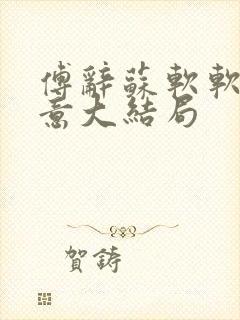 傅辭蘇軟軟
意大結局
賀鑄